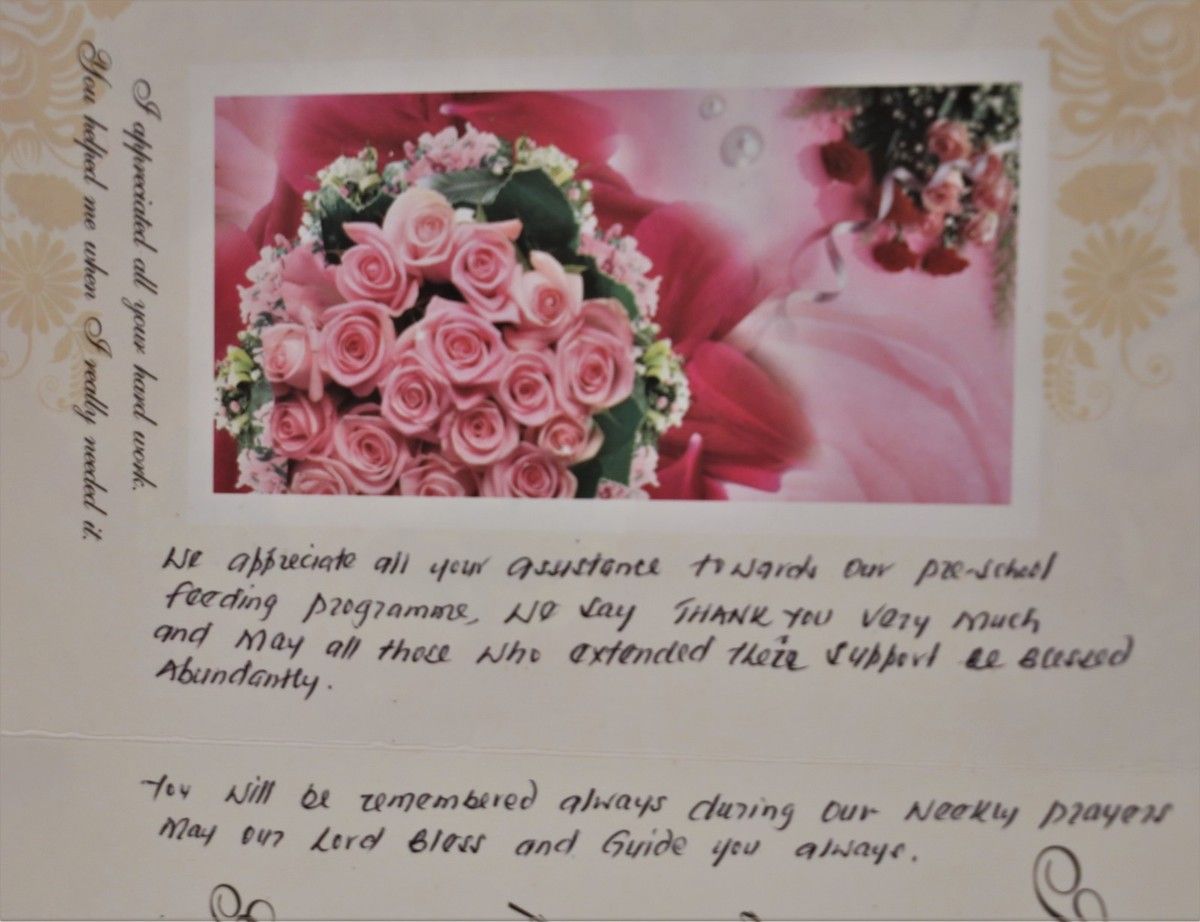 I appreciated all your hard work.
You helped me when I really needed it.
We appreciate all your assistance towards our pre-school
feeding programme, we say THANK YOU very much
and may all those who extended their support be Blessed
Abundantly.
You will be remembered always during our weekly prayers
May our Lord Bless and Guide you always.